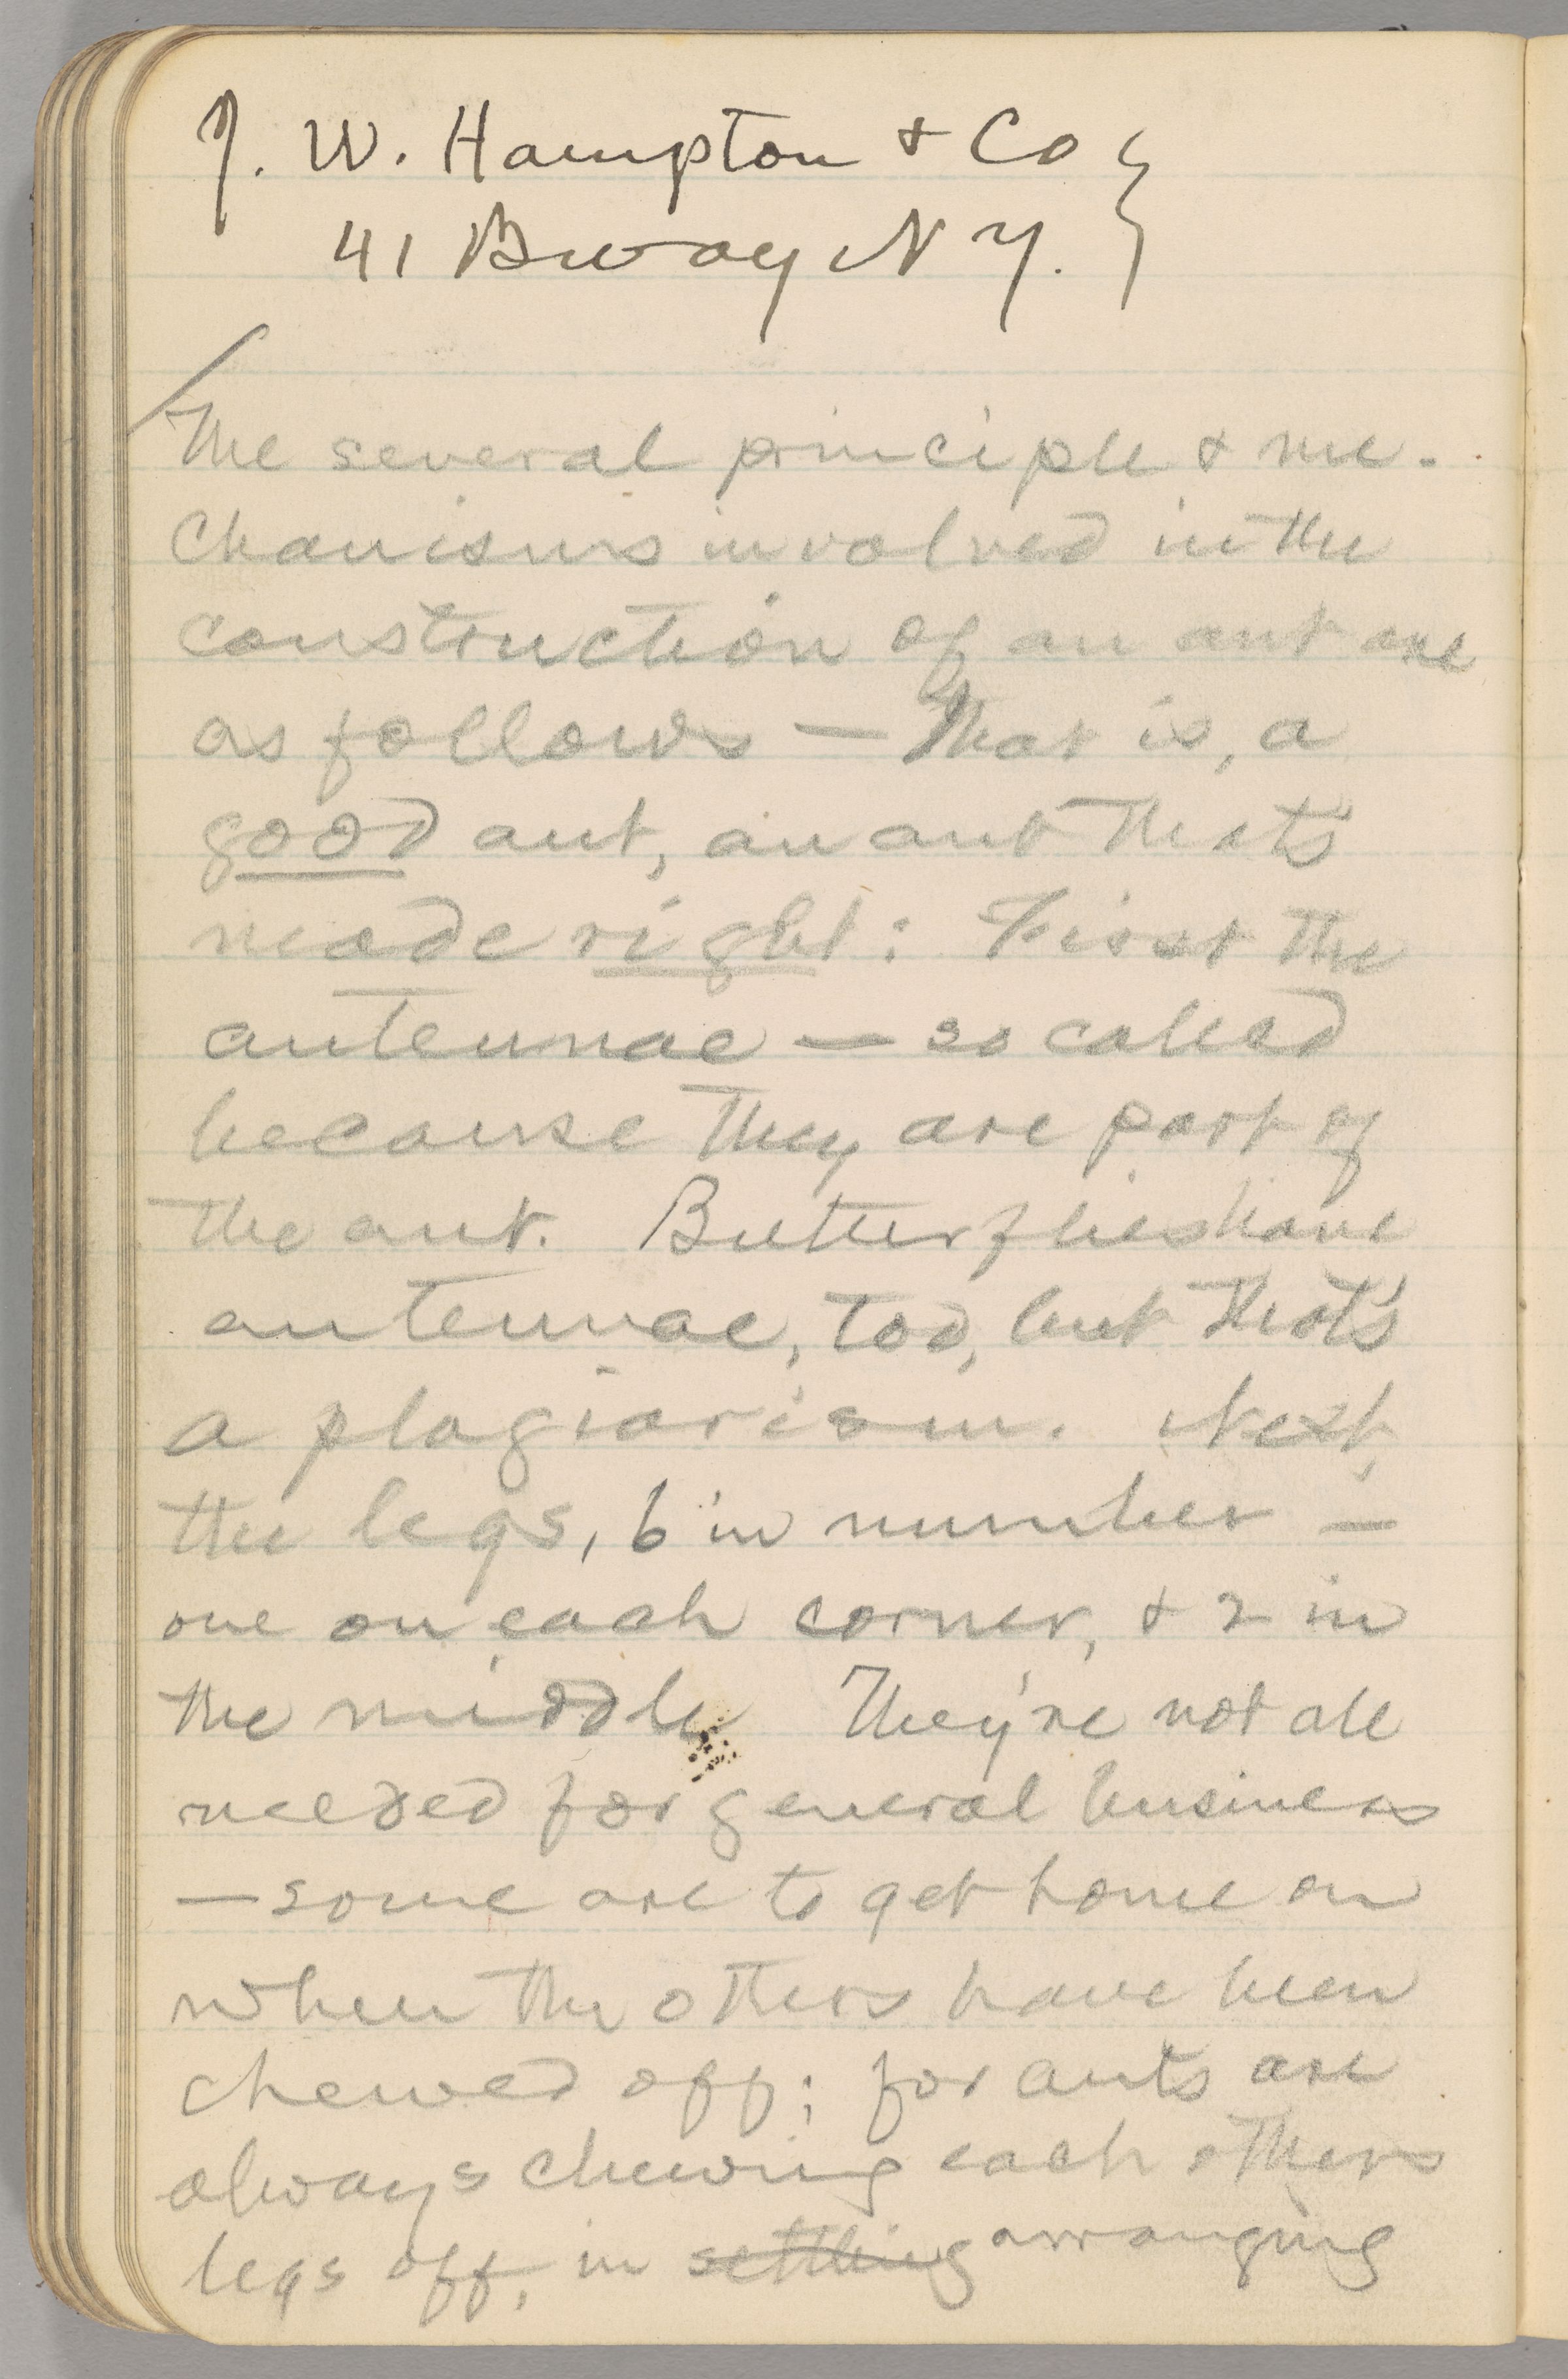 J. W. Hampton & Co }
41 Bway N Y.
The several principle & me-
chanisms involved in the
construction of an ant are
as follows — That is, a
good ant, an ant that's
made right: First the
antennae — so called
because they are part of
the ant. Butterflies have
antennae, too, but that's
a plagiarism. Next,
the legs, 6 in number —
one on each corner, & 2 in
the middle They're not all
needed for general business
— some are to get home on
when the others have been
chewed off; for ants are
always chewing each others
legs off, in settling arranging